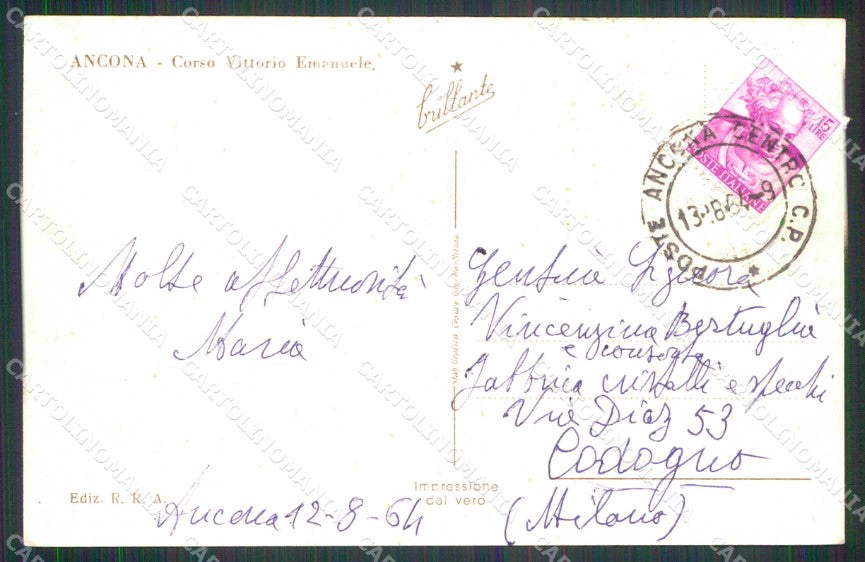 ANCONA - Corso Vittorio Emanuele.
brillante
15 LIRE
POSTE ITALIANE
POSTE ANCONA CENTRO C.P.
13-8-64-9
Molte affettuosità
Maria
Ancona 12-8-64
Ediz. R. R. A.
Impressione
dal vero
Gentma Signora
Vincenzina Bertuglia
e consorte
Fabbrica cristalli e specchi
Via Diaz 53
Codogno
(Milano)
CARTOLINOMANIA